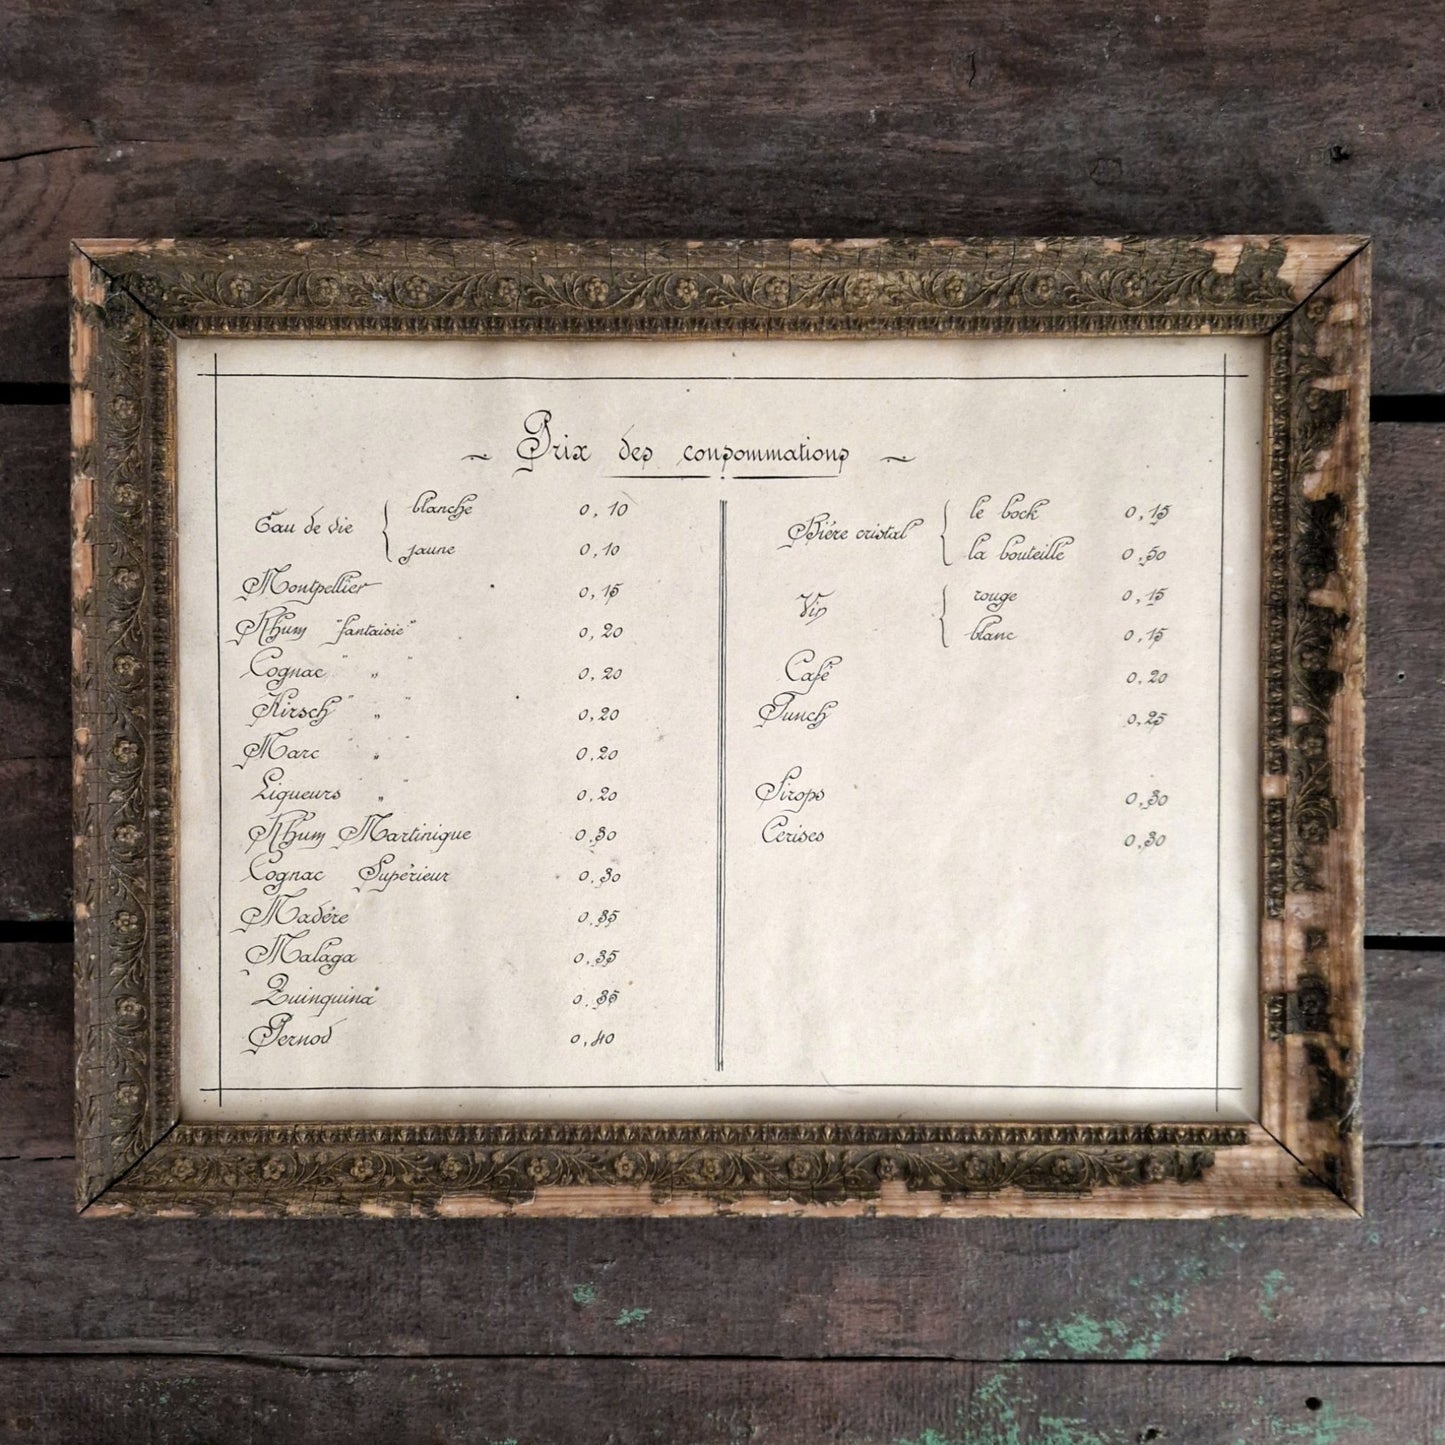 ~ Prix des consommations ~
Eau de vie { blanche 0, 10
jaune 0, 10
Montpellier 0, 15
Rhum "fantaisie" 0, 20
Cognac " „ " 0, 20
Kirsch " „ " 0, 20
Marc " „ " 0, 20
Liqueurs „ " 0, 20
Rhum Martinique 0, 30
Cognac Supérieur 0, 30
Madère 0, 35
Malaga 0, 35
Quinquina 0, 35
Pernod 0, 40
Bière cristal { le bock 0, 15
la bouteille 0, 50
Vin { rouge 0, 15
blanc 0, 15
Café 0, 20
Punch 0, 25
Sirops 0, 30
Cerises 0, 30